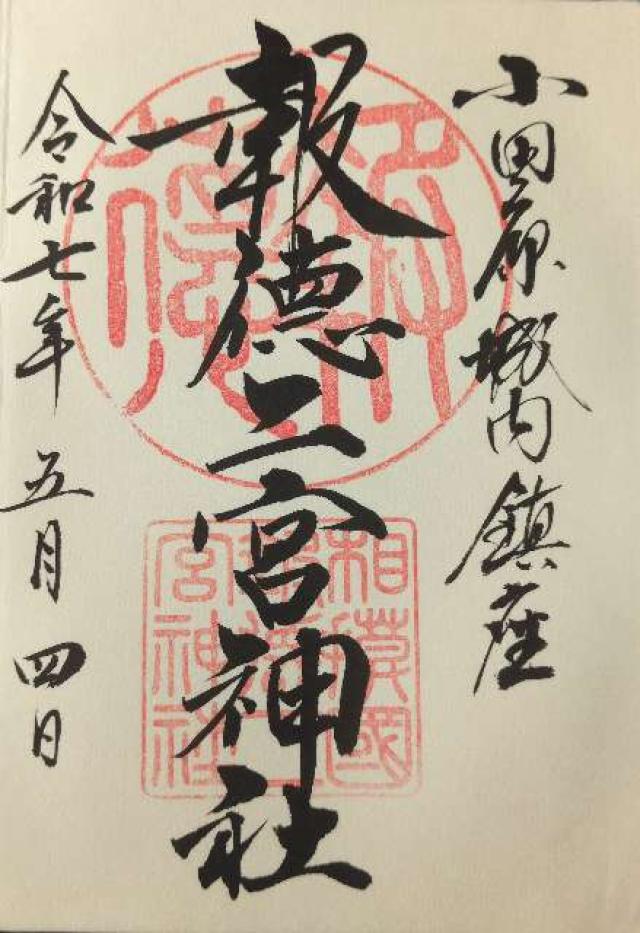 小田原城内鎮座
報徳二宮神社
令和七年 五月四日
相模國
報徳二
宮神社
報徳